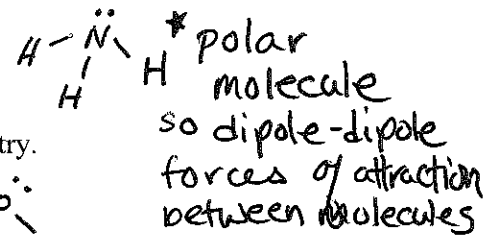 H N H * polar
H molecule
so dipole-dipole
try.
forces of attraction
between molecules